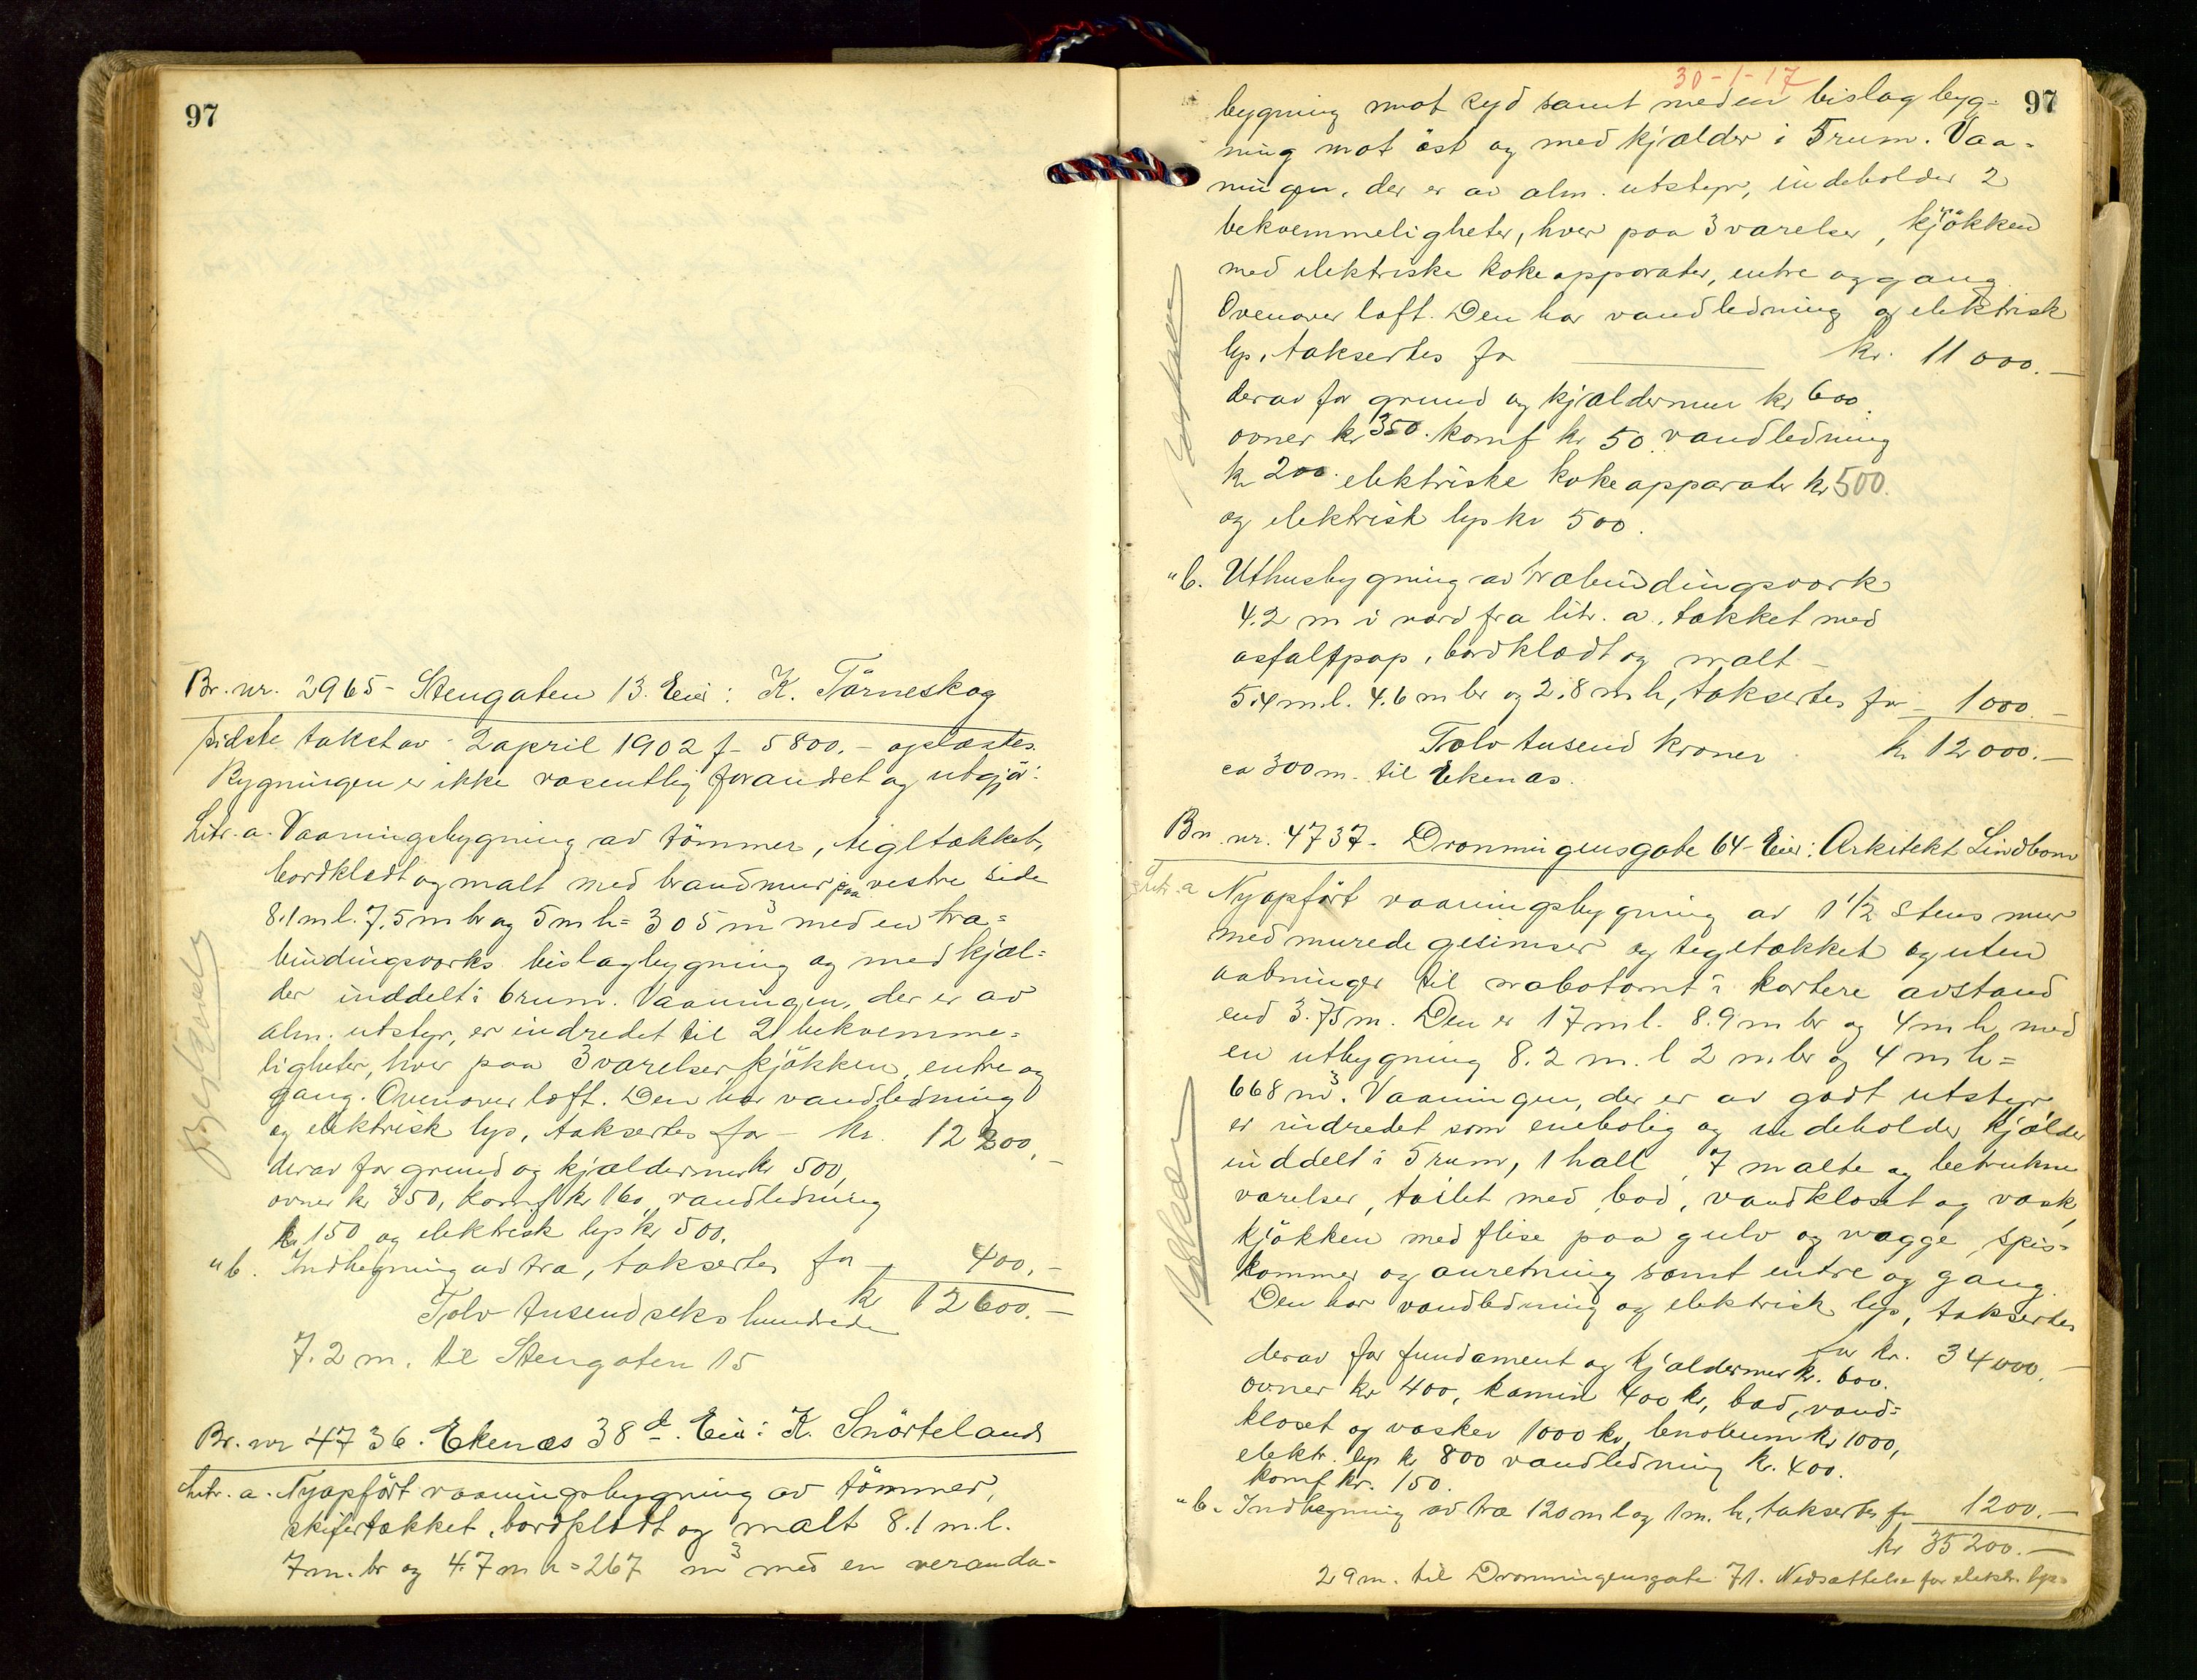 97
Br. nr. 2965 - Stengaten 13. Eier: K. Tårneskog
sidste takst av 2 april 1902 f - 5800.- oplæstes.
Bygningen er ikke væsentlig forandret og utgjör:
Litr. a. Vaaningsbygning av tömmer, tegltækket,
bordklædt og malt med brandmur paa vestre side
8.1 m l. 7,5 m br og 5 m h = 305 m³ med en træ=
bindingsværks bislagbygning og med kjæl=
der inddelt i 6 rum. Vaaningen, der er av
alm. utstyr, er indredet til 2 bekvemme=
ligheter, hver paa 3 værelser, kjökken, entre og
gang. Ovenover loft. Den har vandledning
og elektrisk lys, taksertes for - kr. 12 200.-
derav for grund og kjældermur kr 500,
ovner kr 350, komf kr 160, vandledning
kr 150 og elektrisk lys kr 500.
" b. Indhegning av træ, taksertes for - 400.-
Tolv tusend seks hundrede kr 12600.-
7.2 m. til Stengaten 15
Br. nr 4736. Ekenæs 38 d. Eier: K. Snörteland
Litr. a. Nyopfört vaaningsbygning av tömmer,
skifertækket, bordklædt og malt 8.1 m. l.
7 m. br og 4.7 m h = 267 m³ med en veranda-
30-1-17
97
bygning mot syd samt med en bislagbyg-
ning mot öst og med kjælder i 5 rum. Vaa-
ningen, der er av alm. utstyr, indeholder 2
bekvemmeligheter, hver paa 3 værelser, kjökken
med elektriske kokeapparater, entre og gang.
Ovenover loft. Den har vandledning og elektrisk
lys, taksertes for kr. 11 000.-
derav for grund og kjældermur kr 600.
ovner kr 350. komf kr 50. vandledning
kr 200. elektriske kokeapparater kr 500.
og elektrisk lys kr 500.
" b. Uthusbygning av træbindingsverk
4.2 m i nord fra litr. a., tækket med
asfaltpap, bordklædt og malt -
5.4 m. l. 4.6 m br og 2.8 m h, taksertes for - 1000.-
Tolv tusend kroner kr 12 000.-
ca 300 m. til Ekenæs.
Br. nr. 4737 - Dronningensgate 64 - Eier: Arkitekt Lindbom
Litr. a Nyopfört vaaningsbygning av 1 1/2 stens mur
med murede gesimser og tegltækket og uten
aabninger til nabotomt i kortere avstand
end 3.75 m. Den er 17 m l. 8.9 m br og 4 m h, med
en utbygning 8.2 m. l 2 m. br og 4 m h =
668 m³. Vaaningen, der er av godt utstyr,
er indredet som enebolig og indeholder kjælder
inddelt i 5 rum, 1 hall, 7 malte og betrukne
værelser, toilet med bad, vandkloset og vask,
kjökken med flise paa gulv og vægge, spis=
kammer og anretning samt entre og gang.
Den har vandledning og elektrisk lys, taksertes
for kr. 34 000.-
derav for fundament og kjældermur kr. 600.
ovner kr 400, kamin 400 kr, bad, vand=
kloset og vasker 1000 kr, linoleum kr 1000,
elektr. lys kr 800 vandledning kr. 400.
komf kr. 150.
" b. Indhegning av træ 120 m l og 1 m. h, taksertes for 1200.-
kr 35200.-
29 m. til Dronningensgate 71. Nedsættelse for elektr. lys.